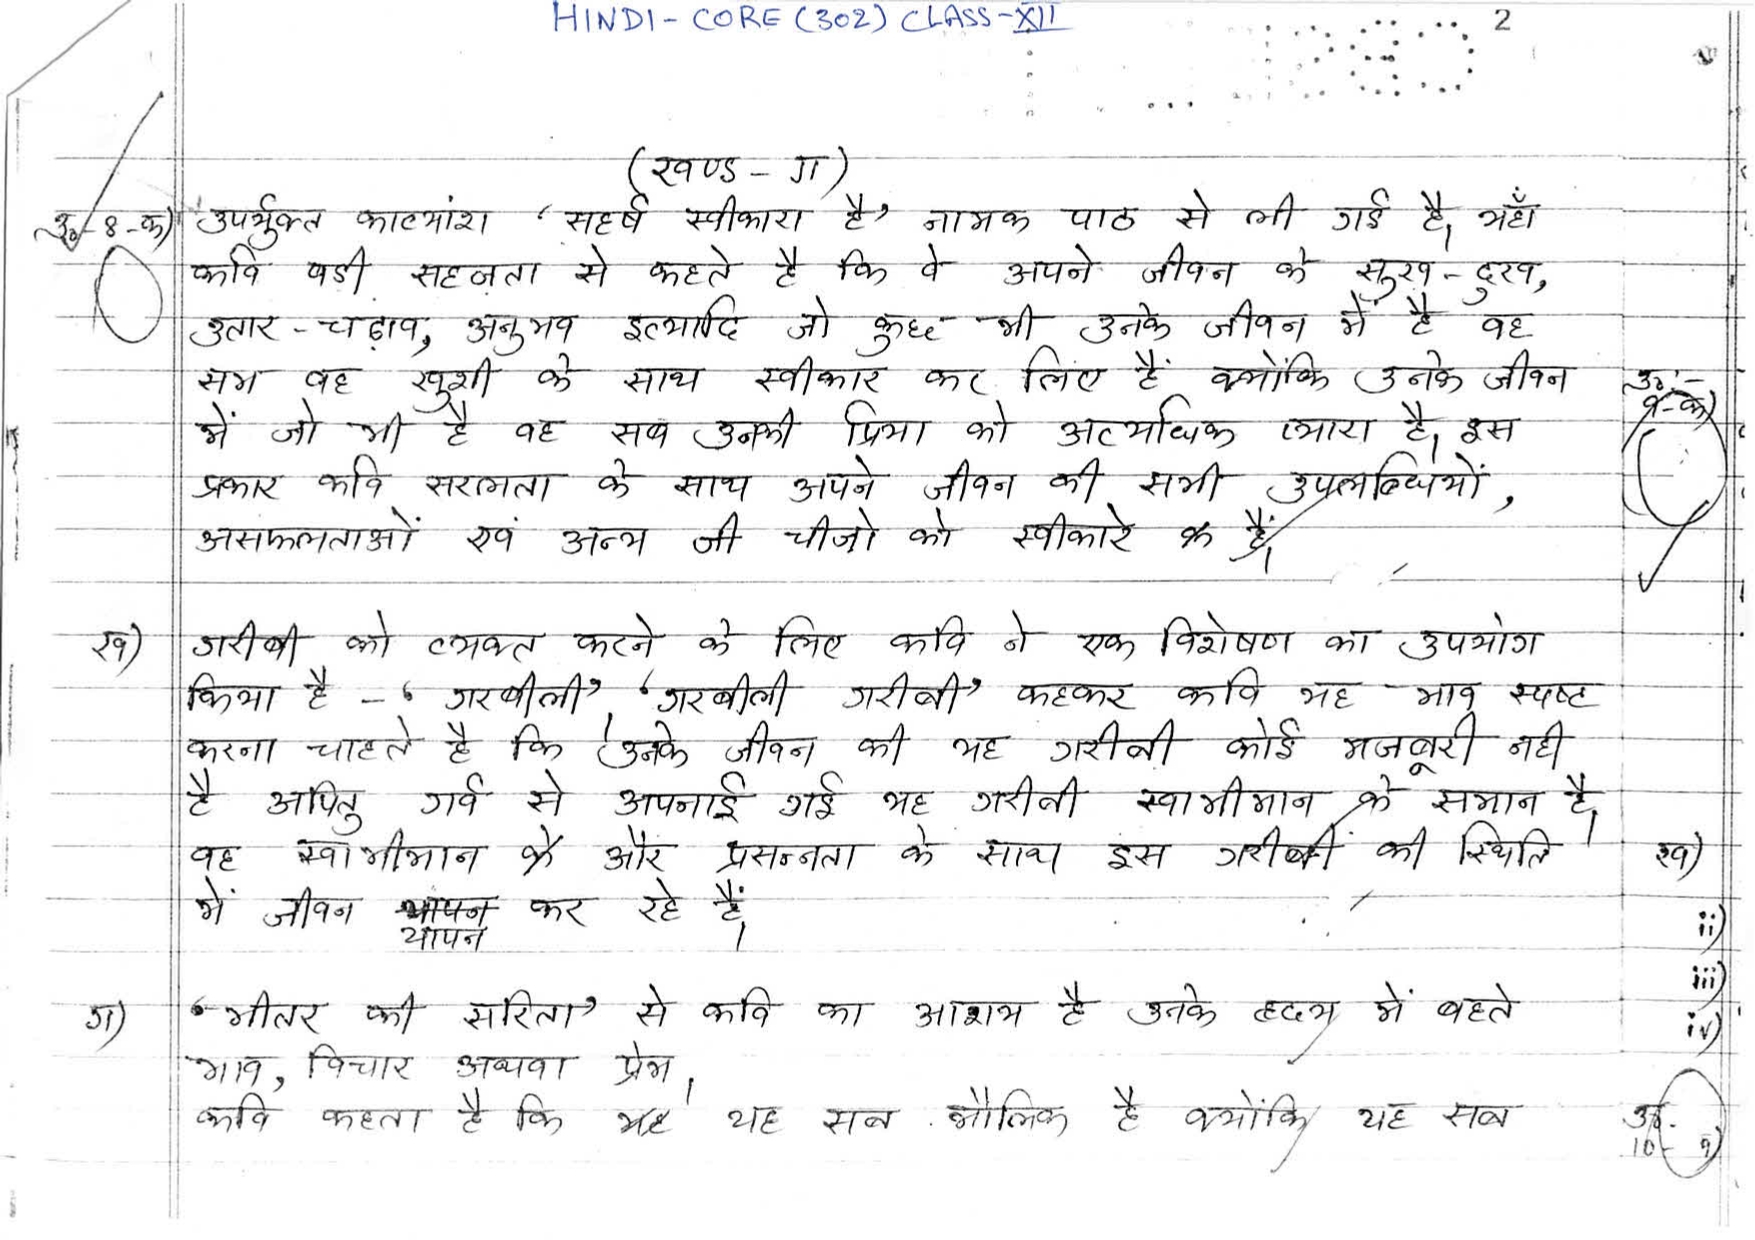 HINDI - CORE (302) CLASS-XII
2
(खण्ड - ग)
उ०-8-क) उपर्युक्त काव्यांश ‘सहर्ष स्वीकारा है’ नामक पाठ से ली गई है। यहाँ
कवि बडी सहजता से कहते है कि वे अपने जीवन के सुख-दुख,
उतार-चढ़ाव, अनुभव इत्यादि जो कुछ भी उनके जीवन में है वह
सभ वह खुशी के साथ स्वीकार कर लिए हैं क्योंकि उनके जीवन
में जो भी है वह सब उनकी प्रिया को अत्यधिक प्यारा है। इस
प्रकार कवि सरलता के साथ अपने जीवन की सभी उपलब्धियों,
असफलताओं एवं अन्य जी चीजो को स्वीकारे क हैं।
उ०-
9-क)
ख) गरीबी को व्यक्त करने के लिए कवि ने एक विशेषण का उपयोग
किया है - ‘गरबीली’। ‘गरबीली गरीबी’ कहकर कवि यह भाव स्पष्ट
करना चाहते है कि उनके जीवन की यह गरीबी कोई मजबूरी नही
है अपितु गर्व से अपनाई गई यह गरीबी स्वाभीमान के समान है।
वह स्वाभीमान के और प्रसन्नता के साथ इस गरीबी की स्थिति
में जीवन यापन कर रहे हैं।
यापन
ख)
ii)
iii)
iv)
ग) ‘भीतर की सरिता’ से कवि का आशय है उनके हृदय में बहते
भाव, विचार अथवा प्रेम।
कवि कहता है कि यह यह सब मौलिक है क्योंकि यह सब
उ०-
10-